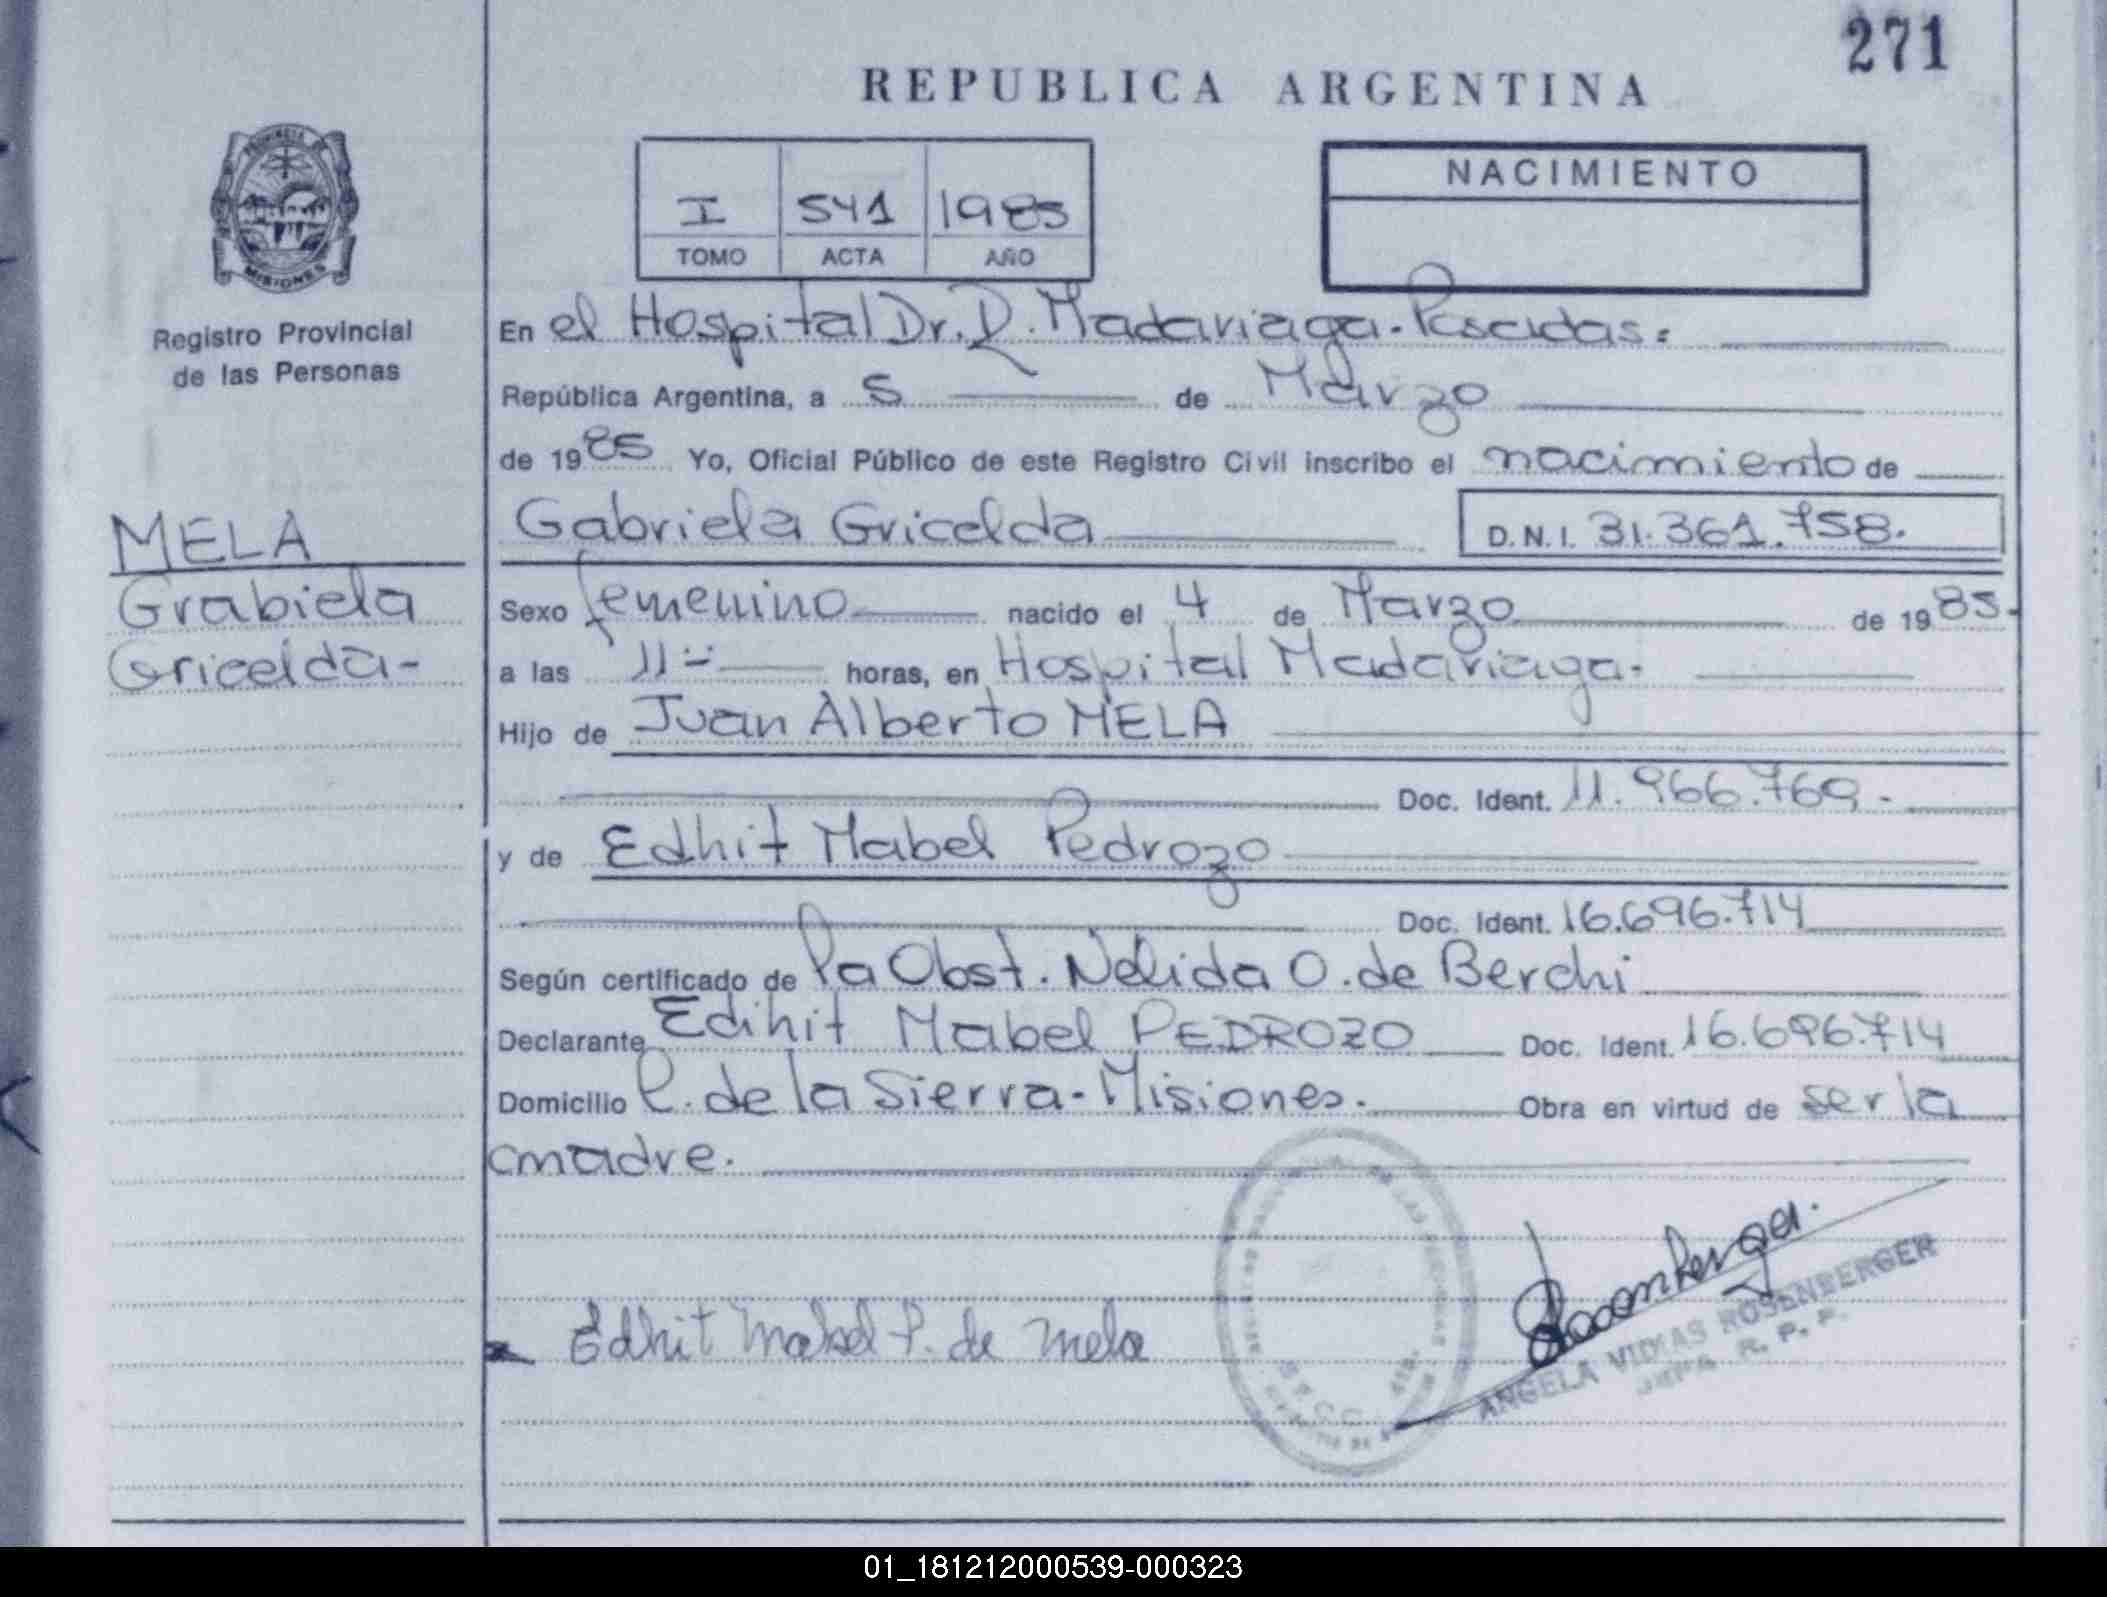 271
REPUBLICA ARGENTINA
PROVINCIA DE
MISIONES
Registro Provincial
de las Personas
I 541 1985
TOMO ACTA AÑO
NACIMIENTO
En el Hospital Dr. R. Madariaga. Posadas.
República Argentina, a 5 de Marzo
de 1985 Yo, Oficial Público de este Registro Civil inscribo el nacimiento de
MELA
Grabiela
Gricelda-
Gabriela Gricelda D.N.I. 31.361.758.
Sexo femenino nacido el 4 de Marzo de 1985.
a las 11- horas, en Hospital Madariaga.
Hijo de Juan Alberto MELA
Doc. Ident. 11.966.769.-
y de Edhit Mabel Pedrozo
Doc. Ident. 16.696.714
Según certificado de Pa Obst. Nelida O. de Berchi
Declarante Edihit Mabel PEDROZO Doc. Ident. 16.696.714
Domicilio C. de la Sierra-Misiones. Obra en virtud de ser la
madre.
Edhit Mabel P. de Mela
DE LAS PERSONAS
Rosenberger
ANGELA VIDMAS ROSENBERGER
JEFA R. P. P.
01_181212000539-000323